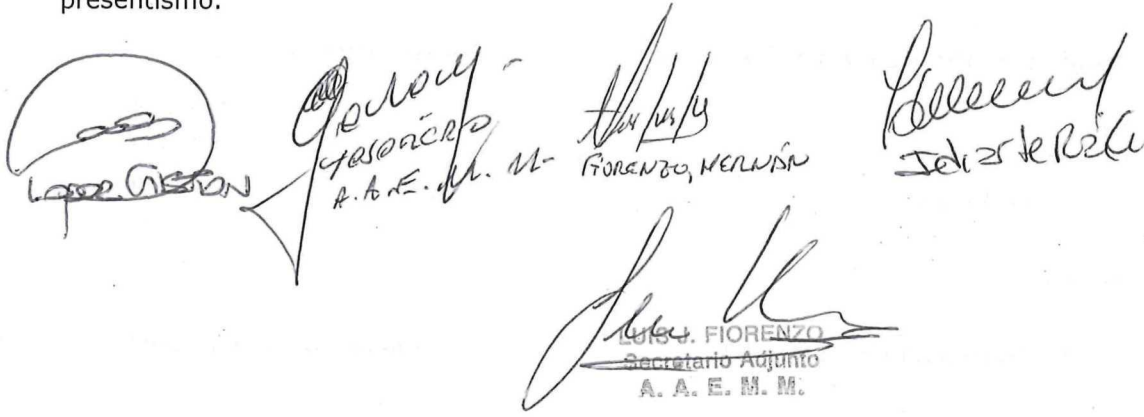 presentismo.
Lopez Gaston
TESORERO
A.A.E.M.M-
FIORENZO, HERNÁN
LUIS J. FIORENZO
Secretario Adjunto
A. A. E. M. M.